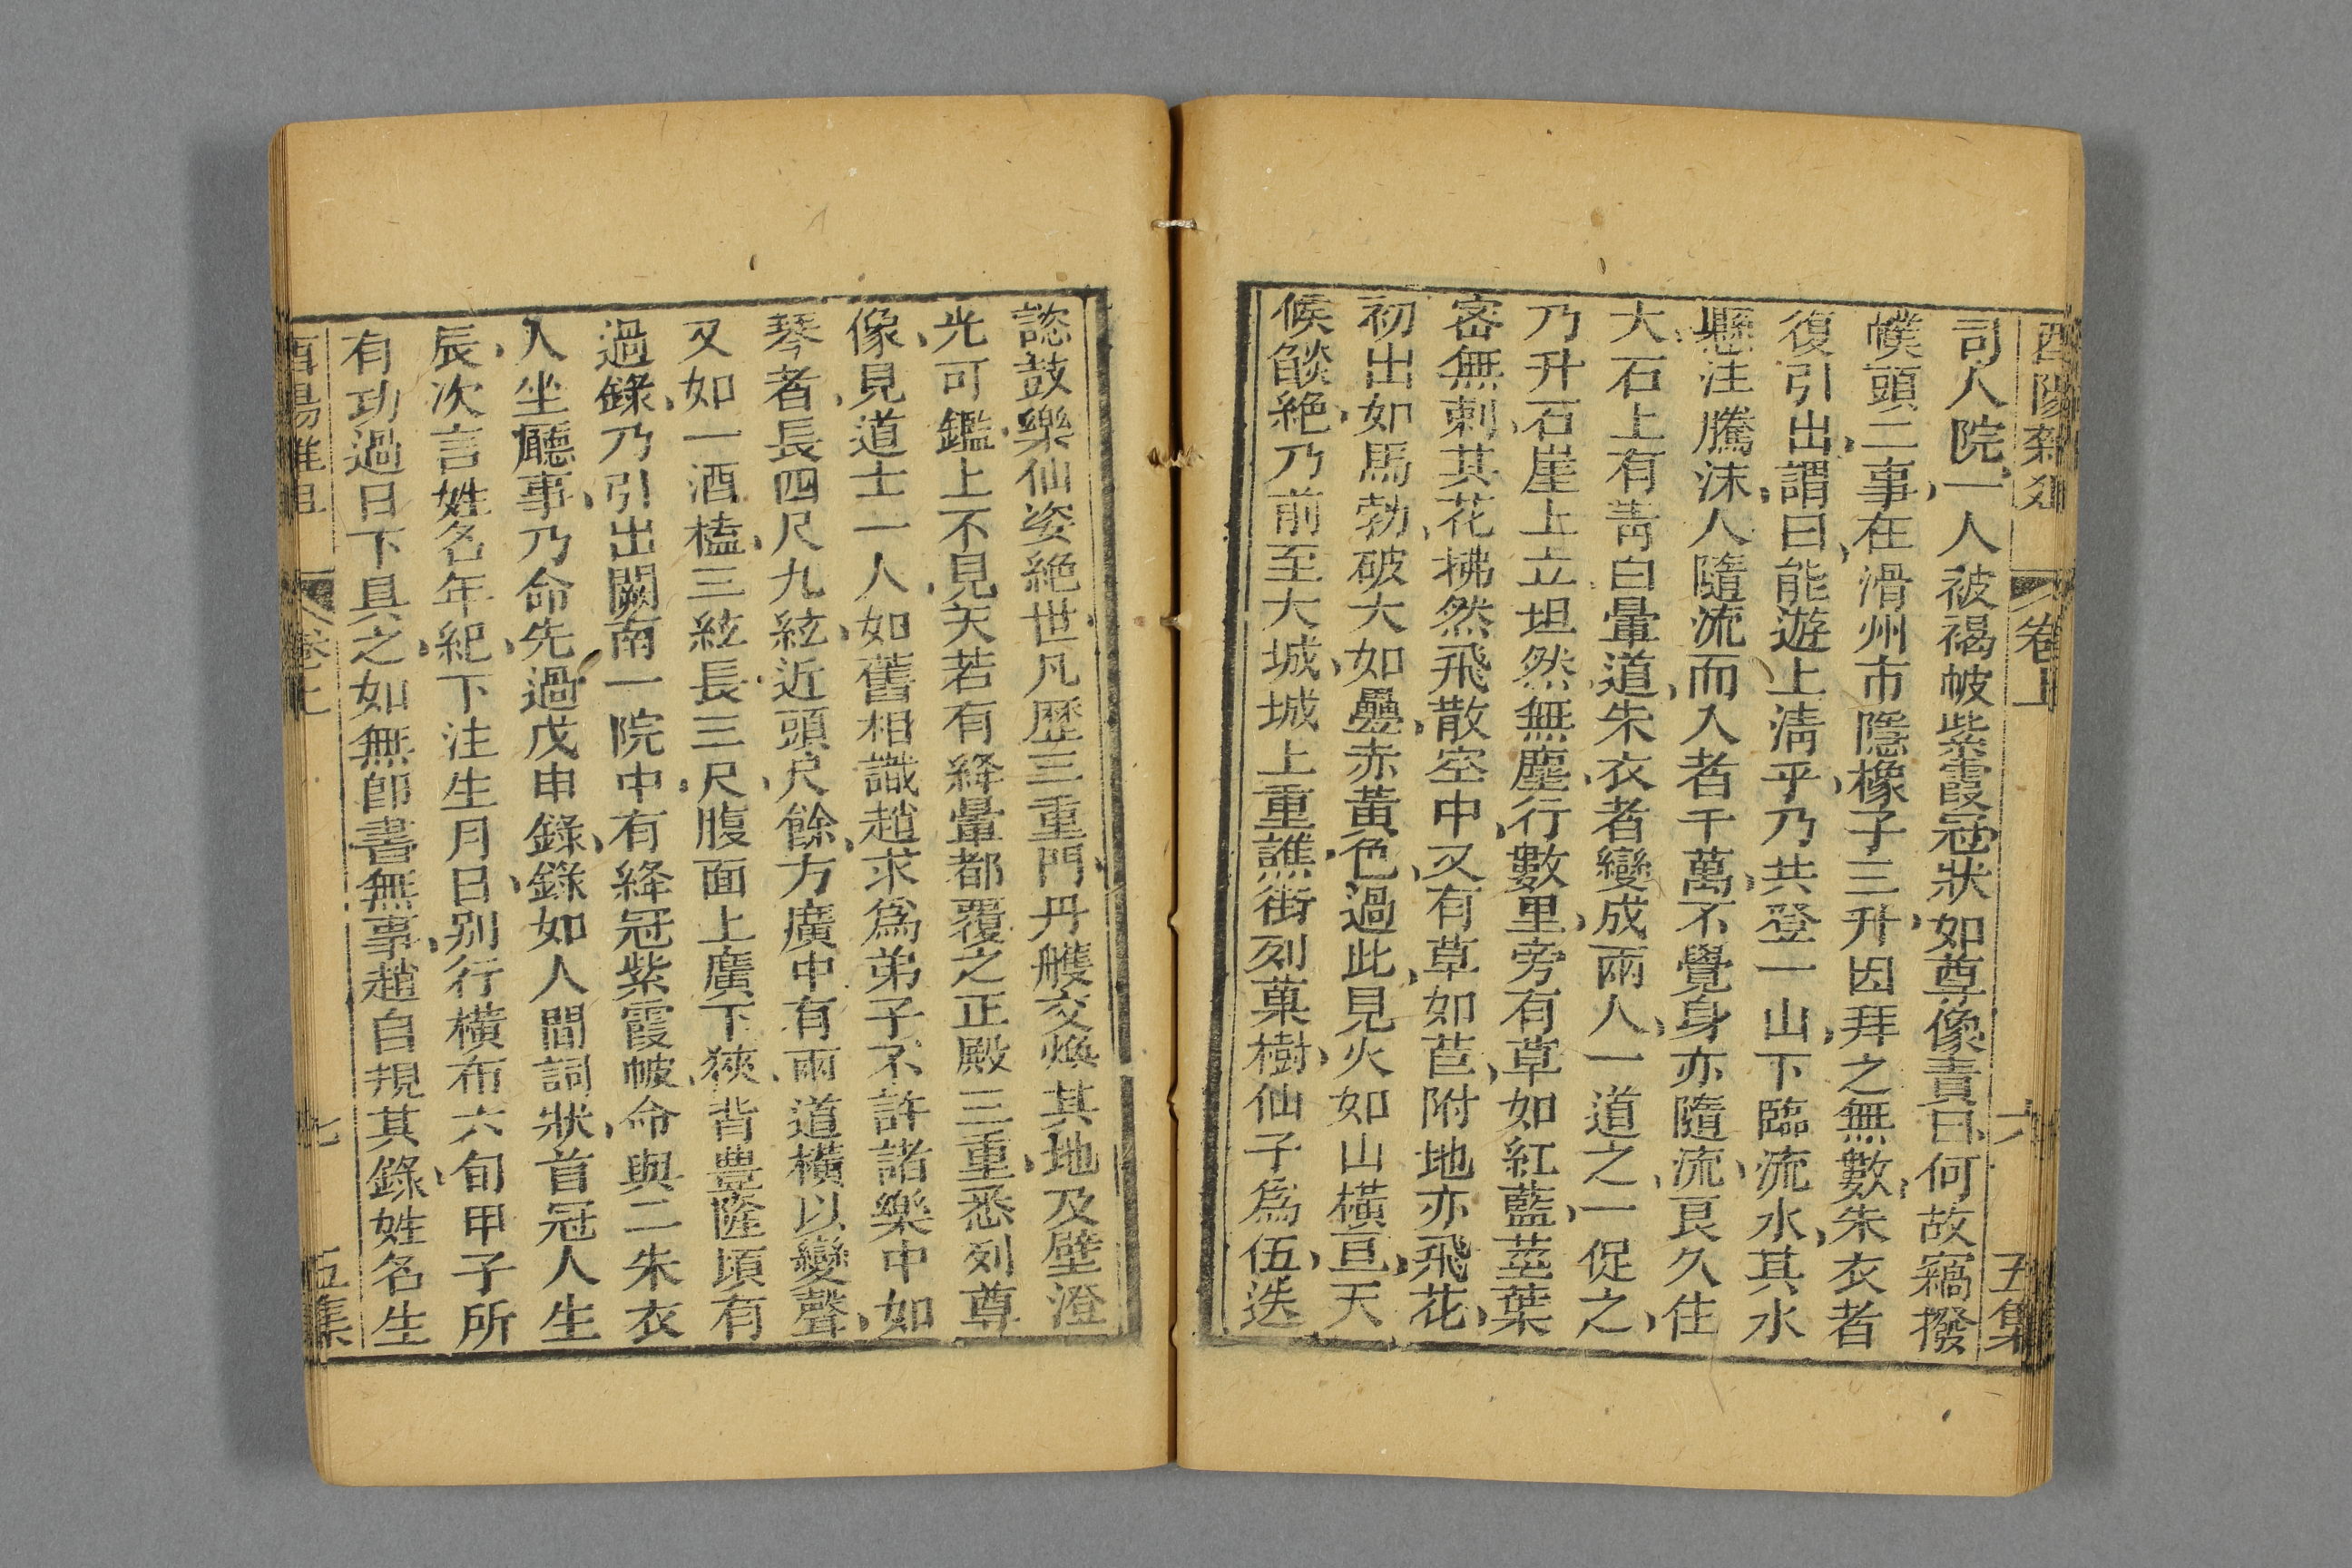 酉陽雜俎 卷上 六 五集
司人院一人被褐帔紫霞冠狀如尊像責曰何故竊撥
幞頭二事在滑州市隱橡子三升因拜之無數朱衣者
復引出謂曰能遊上清乎乃共登一山下臨流水其水
懸注騰沫人隨流而入者千萬不覺身亦隨流良久住
大石上有青白暈道朱衣者變成兩人一道之一促之
乃升石崖上立坦然無塵行數里旁有草如紅藍莖葉
密無刺其花拂然飛散空中又有草如苣附地亦飛花
初出如馬勃破大如疊赤黃色過此見火如山橫亘天
候燄絶乃前至大城城上重譙街列菓樹仙子爲伍迭
謠鼓樂仙姿絶世凡歷三重門丹雘交煥其地及壁澄
光可鑑上不見天若有絳暈都覆之正殿三重悉列尊
像見道士一人如舊相識趙求爲弟子不許諸樂中如
琴者長四尺九絃近頭尺餘方廣中有兩道橫以變聲
又如一酒榼三絃長三尺腹面上廣下狹背豊隆頃有
過錄乃引出闕南一院中有絳冠紫霞帔命與二朱衣
人坐廳事乃命先過戊申錄錄如人間詞狀首冠人生
辰次言姓名年紀下注生月日别行橫布六旬甲子所
有功過日下具之如無卽書無事趙自規其錄姓名生
酉陽雜俎 卷上 七 五集